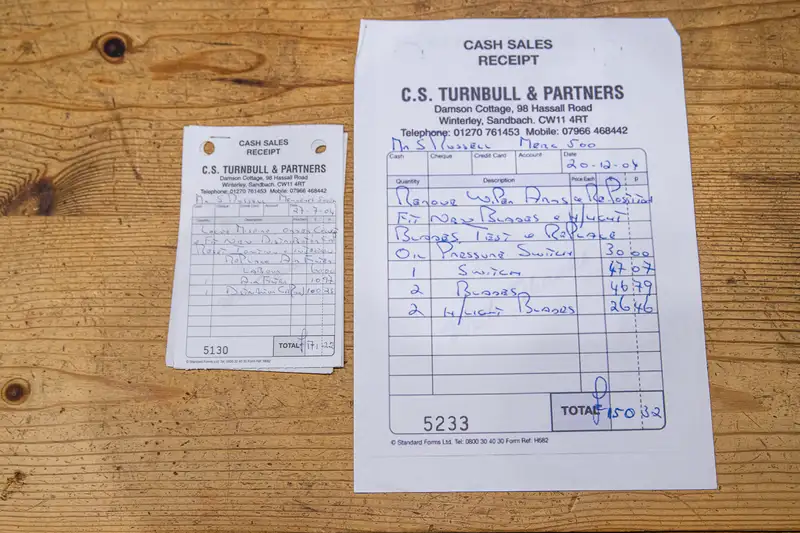 CASH SALES
RECEIPT
C.S. TURNBULL & PARTNERS
Damson Cottage, 98 Hassall Road
Winterley, Sandbach. CW11 4RT
Telephone: 01270 761453 Mobile: 07966 468442
Mr S Russell
Cash Cheque Credit Card Account Date
27-7-04
Quantity Description
& Fit New Distributor
Replace Air Filter
Labour 60.00
1 Air Filter
1
5130 TOTAL £171.22
© Standard Forms Ltd. Tel: 0800 30 40 30 Form Ref: H682
CASH SALES
RECEIPT
C.S. TURNBULL & PARTNERS
Damson Cottage, 98 Hassall Road
Winterley, Sandbach. CW11 4RT
Telephone: 01270 761453 Mobile: 07966 468442
Mr S Russell Merc 500
Cash Cheque Credit Card Account Date
20-12-04
Quantity Description Price Each £ p
Remove Wiper Arms & Reposition
Fit New Blades & H/Light
Blades, Test & Replace
Oil Pressure Switch 30 00
1 Switch 47 07
2 Blades 46 79
2 H/Light Blades 26 46
5233 TOTAL £150 32
© Standard Forms Ltd. Tel: 0800 30 40 30 Form Ref: H682